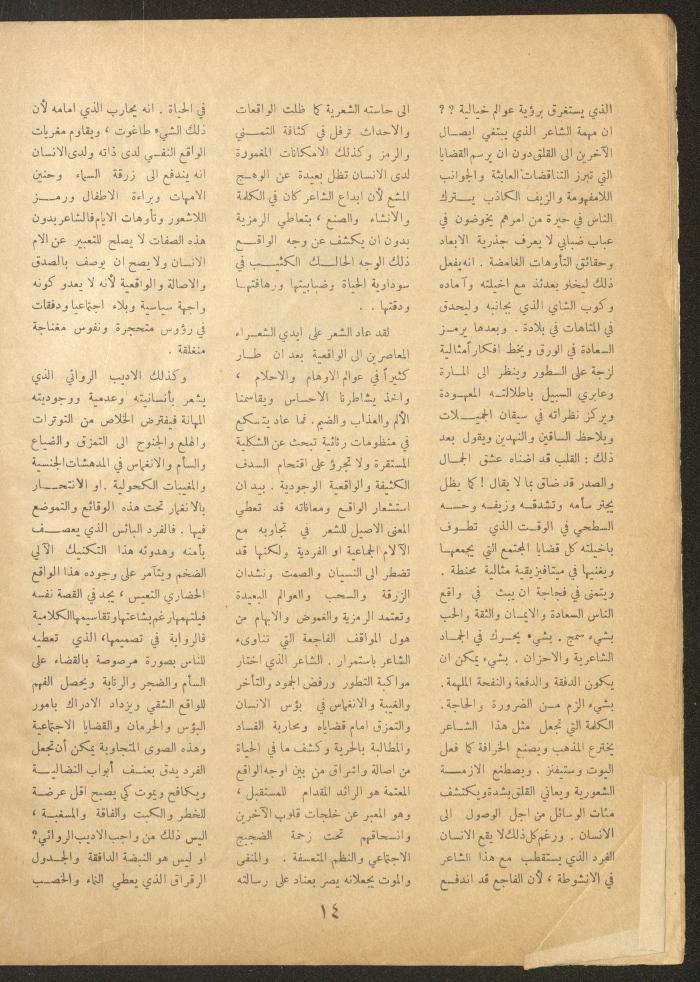 الذي يستغرق برؤية عوالم خيالية ??
ان مهمة الشاعر الذي يبتغي ايصال
الآخرين الى القلق دون ان يرسم القضايا
التي تبرز التناقضات العابثة والجوانب
اللامفهومة والزيف الكاذب يترك
الناس في حيرة من امرهم يخوضون في
عباب ضبابي لا يعرف جذرية الابعاد
وحقائق التأوهات الغامضة . انه يفعل
ذلك ليخلو بعدئذ مع اخيلته وآماده
وكوب الشاي الذي بجانبه وليحدق
في المتاهات في بلادة . وبعدها يرمز
السعادة في الورق ويخط افكاراً مثالية
لزجة على السطور وينظر الى المارة
وعابري السبيل باطلالته المعهودة
ويركز نظراته في سيقان الجميلات
ويلاحظ الساقين والنهدين ويقول بعد
ذلك : القلب قد اضناه عشق الجمال
والصدر قد ضاق بما لا يقال ! كما يظل
يجتر سأمه وتشدقه وزيفه وحسه
السطحي في الوقت الذي تطوف
باخيلته كل قضايا المجتمع التي يجمعها
ويغنيها في ميتافيزيقية مثالية محنطة .
ويتمنى في فجاجة ان يبث في واقع
الناس السعادة والايمان والثقة والحب
بشيء سمج . بشيء يحرك في الجماد
الشاعرية والاحزان . بشيء يمكن ان
يكون الدفقة والدفعة والنفحة الملهمة .
بشيء الزم من الضرورة والحاجة .
الكلمة التي تجعل مثل هذا الشاعر
يخترع المذهب ويصنع الخرافة كما فعل
اليوت وستيفنز . ويصطنع الازمة
الشعورية ويعاني القلق بشدة ويكتشف
مئات الوسائل من اجل الوصول الى
الانسان . ورغم كل ذلك لا يقع الانسان
الفرد الذي يستقطب مع هذا الشاعر
في الانشوطة ، لأن الفاجع قد اندفع
الى حاسته الشعرية كما ظلت الواقعات
والاحداث ترفل في كثافة التمني
والرمز وكذلك الامكانات المغمورة
لدى الانسان تظل بعيدة عن الوهج
المشع لأن ابداع الشاعر كان في الكلمة
والانشاء والصنع ، يتعاطى الرمزية
بدون ان يكشف عن وجه الواقع
ذلك الوجه الحالك الكئيب في
سوداوية الحياة وضبابيتها ورهافتها
ودقتها . .
لقد عاد الشعر على ايدي الشعراء
المعاصرين الى الواقعية بعد ان طار
كثيراً في عوالم الاوهام والاحلام ،
واخذ يشاطرنا الاحساس ويقاسمنا
الألم والعذاب والضيم . فما عاد يتسكع
في منظومات رثائية تبحث عن الشكلية
المستقرة ولا تجرؤ على اقتحام السدف
الكثيفة والواقعية الوجودية . بيد ان
استشعار الواقع ومعاناته قد تعطي
المعنى الاصيل للشعر في تجاوبه مع
الآلام الجماعية او الفردية ولكنها قد
تضطر الى النسيان والصمت ونشدان
الزرقة والسحب والعوالم البعيدة
وتعتمد الرمزية والغموض والايهام من
هول المواقف الفاجعة التي تناوىء
الشاعر باستمرار . الشاعر الذي اختار
مواكبة التطور ورفض الجمود والتأخر
والغيبة والانغماس في بؤس الانسان
والتمزق امام قضاياه ومحاربة الفساد
والمطالبة بالحرية وكشف ما في الحياة
من اصالة واشراق من بين اوجه الواقع
المعتمة هو الرائد المقدام للمستقبل ،
وهو المعبر عن خلجات قلوب الآخرين
وانسحاقهم تحت زحمة الضجيج
الاجتماعي والنظم المتعسفة . والمنفى
والموت يجعلانه يصر بعناد على رسالته
في الحياة . انه يحارب الذي امامه لأن
ذلك الشيء طاغوت ، ويقاوم مغريات
الواقع النفسي لدى ذاته ولدى الانسان
انه يندفع الى زرقة السماء وحنين
الامهات وبراءة الاطفال ورمز
اللاشعور وتأوهات الايام فالشاعر بدون
هذه الصفات لا يصلح للتعبير عن الام
الانسان ولا يصح ان يوصف بالصدق
والاصالة والواقعية لأنه لا يعدو كونه
واجهة سياسية وبلاء اجتماعيا ودفقات
في رؤوس متحجرة ونفوس مغناجة
منغلقة .
وكذلك الاديب الروائي الذي
يشعر بأنسانيته وعدمية ووجوديته
المهانة فيفترض الخلاص من التوترات
والهلع والجنوح الى التمزق والضياع
والسأم والانغماس في المدهشات الجنسية
والمغيبات الكحولية . او الانتحار
بالانغمار تحت هذه الوقائع والتموضع
فيها . فالفرد البائس الذي يعصف
بأمنه وهدوئه هذا التكنيك الآلي
الضخم ويتآمر على وجوده هذا الواقع
الحضاري التعيس ، يجد في القصة نفسه
فيلتهمها رغم بشاعتها وتقاسيمها الكلامية
فالرواية في تصميمها ، الذي تعطيه
للناس بصورة مرصوصة بالقضاء على
السأم والضجر والرتابة ويحصل الفهم
للواقع الشقي ويزداد الادراك بامور
البؤس والحرمان والقضايا الاجتماعية
وهذه الصوى المتجاوبة يمكن أن تجعل
الفرد يدق بعنف أبواب النضالية
ويكافح ويموت كي يصبح اقل عرضة
للخطر والكبت والفاقة والمسغبة ،
اليس ذلك من واجب الاديب الروائي ؟
او ليس هو النبضة الدافقة والجدول
الرقراق الذي يعطي النماء والخصب
١٤